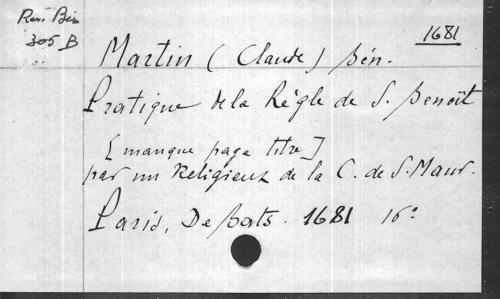 1681
Rés. Bén
305 B
Martin (Claude) Bén.
Pratique de la Règle de S. Benoît
[manque page titre]
par un Religieux de la C. de S. Maur.
Paris, De Bats. 1681 16º